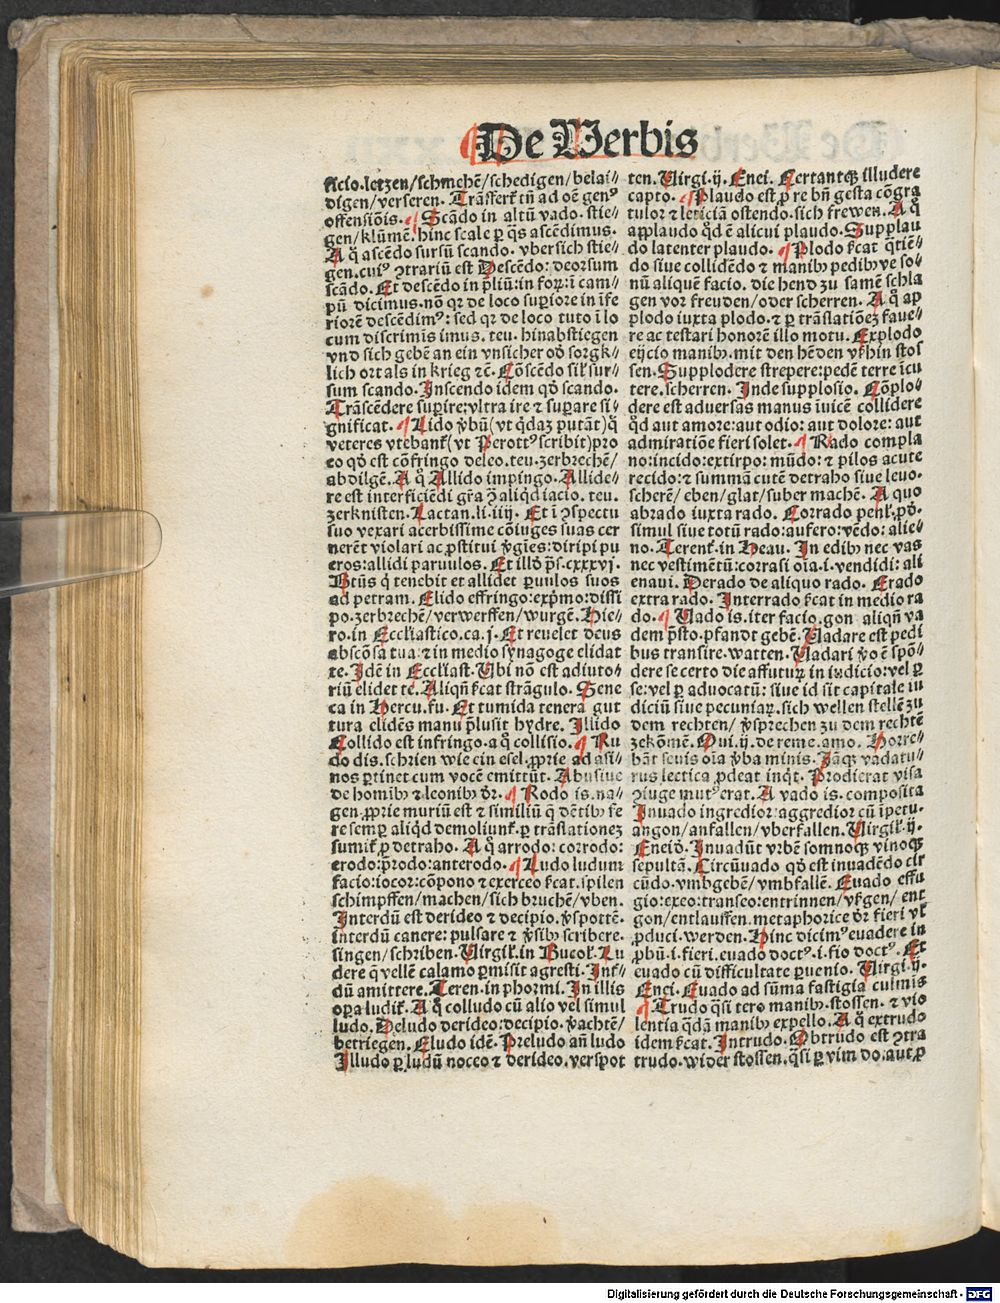 De Verbis
ficio.letzen/schmehẽ/schedigen/belai⸗
digen/verseren. Trãsfert᷑ tñ ad oẽ genꝰ
offensiõis. ¶ Scãdo in altũ vado. stie⸗
gen/klũmẽ. hinc scale ꝑ q̃s ascẽdimus.
A q̊ ascẽdo sursũ scando. vbersich stie⸗
gen. cuiꝰ ↄtrariũ est Descẽdo: deorsum
scãdo. Et descẽdo in p̃liũ: in forꝫ: ĩ cam⸗
pũ dicimus. nõ qꝛ de loco supiore in ĩfe
riorẽ descẽdimꝰ: sed qꝛ de loco tuto ĩ lo
cum discrimĩs imus. teu. hinabstiegen
vnd sich gebẽ an ein vnsicher oð sorgk⸗
lich ort als in krieg ⁊c̃. Cõscẽdo sil᷑ sur⸗
sum scando. Inscendo idem qð scando.
Trãscẽdere supire: vltra ire ⁊ supare si⸗
gnificat. ¶ Lido v̓bũ (vt q̃daꝫ putãt) q̊
veteres vtebant᷑ (vt Perottꝰ scribit) pro
eo qð est cõfringo deleo. teu. zerbrechẽ/
abdilgẽ. A q̊ Allido impingo. Allide⸗
re est interficiẽdi gr̃a ↄ̃ aliq̃d iacio. teu.
zerknisten. Lactan. li. iiij. Et ĩ ↄspectu
suo vexari acerbissime cõiuges suas cer
nerẽt violari ac ꝓstitui v̓gĩes: diripi pu
eros: allidi paruulos. Et illð p̃s. cxxxvj.
Btũs q̇ tenebit et allidet ꝑuulos suos
ad petram. Elido effringo: exp̃mo: dissi
po. zerbrechẽ/verwerffen/wurgẽ. Hie⸗
ro. in Eccl᷑iastico. ca. j. Et reuelet deus
abscõsa tua: ⁊ in medio synagoge elidat
te. Idẽ in Eccl᷑iast. Vbi nõ est adiuto⸗
riũ elidet te. Aliqñ s̓cat strãgulo. Sene
ca in Hercu. fu. Et tumida tenera gut
tura elidẽs manu p̃lusit hydre. Illido
Collido est infringo. a q̊ collisio. ¶ Ru
do dis. schrien wie ein esel. ꝓprie ad asi⸗
nos ꝑtinet cum vocẽ emittũt. Abusiue
de homĩbꝰ ⁊ leonibꝰ dr̃. ¶ Rodo is. na⸗
gen. ꝓprie muriũ est ⁊ similiũ q̇ dẽtibꝰ fe
re semꝑ aliq̃d demoliunt᷑. ꝑ trãslationeꝫ
sumit᷑ ꝓ detraho. A q̊ arrodo: corrodo:
erodo: p̃rodo: anterodo. ¶ Ludo ludum
facio: iocor: cõpono ⁊ exerceo s̓cat. spilen
schimpffen/machen/sich bruchẽ/vben.
Interdũ est derideo ⁊ decipio. v̓spottẽ.
interdũ canere: pulsare ⁊ v̓sibꝰ scribere.
singen/schriben. Virgil᷑. in Bucol᷑. Lu
dere q̃ vellẽ calamo ꝑmisit agresti. Inſ⸗
dũ amittere. Teren. in phormi. In illis
oꝑa ludit᷑. A q̊ colludo cũ alio vel simul
ludo. Deludo derideo: decipio. v̓achtẽ/
betriegen. Eludo idẽ. Preludo añ ludo
Illudo ꝑ ludũ noceo ⁊ derideo. verspot
ten. Virgi. ij. Enei. Certantqꝫ illudere
capto. ¶ Plaudo est ꝓ re bñ gesta cõgra
tulor ⁊ leticiã ostendo. sich frewen. A q̊
applaudo q̃d ẽ alicui plaudo. Supplau
do latenter plaudo. ¶ Plodo s̓cat q̃tiẽ⸗
do siue collidẽdo ⁊ manibꝰ pedibꝰ ve so⸗
nũ aliquẽ facio. die hend zu samẽ schla
gen vor freuden/oder scherren. A q̊ ap
plodo iuxta plodo. ⁊ ꝑ trãslatiõeꝫ faue⸗
re ac testari honorẽ illo motu. Explodo
eijcio manibꝰ. mit den hẽden v̓hin stos
sen. Supplodere strepere: pedẽ terre ĩcu
tere. scherren. Inde supplosio. Cõplo⸗
dere est aduersas manus ĩuicẽ collidere
q̊d aut amore: aut odio: aut dolore: aut
admiratiõe fieri solet. ¶ Rado compla
no: incido: extirpo: mũdo: ⁊ pilos acute
recido: ⁊ summã cutẽ detraho siue leuo.
scherẽ/eben/glat/suber machẽ. A quo
abrado iuxta rado. Corrado penl᷑. ꝓð.
simul siue totũ rado: aufero: vẽdo: alie⸗
no. Terent᷑. in Heau. In edibꝰ nec vas
nec vestimẽtũ: corrasi oĩa. i. vendidi: ali
enaui. Derado de aliquo rado. Erado
extra rado. Interrado s̓cat in medio ra
do. ¶ Vado is. iter facio. gon aliqñ va
dem p̃sto. pfandt gebẽ. Vadare est pedi
bus transire. watten. Vadari v̓o ẽ spõ⸗
dere se certo die affuturꝫ in iudicio: vel ꝑ
se: vel ꝑ aduocatũ: siue id sit capitale iu
diciũ siue pecuniarꝫ. sich wellen stellẽ zu
dem rechten/v̓sprechen zu dem rechtẽ
zekõmẽ. Oui. ij. de reme. amo. Horre⸗
bãt seuis oĩa v̓ba minis. Iãqꝫ vadatu⸗
rus lectica ꝓdeat inq̇t. Prodierat visa
ↄiuge mutꝰ erat. A vado is. composita
Inuado ingredior: aggredior cũ ĩpetu.
angon/anfallen/vberfallen. Virgil᷑. ij.
Eneið. Inuadũt vrbẽ somnoqꝫ vinoqꝫ
sepultã. Circũuado qð est inuadẽdo cir
cũdo. vmbgebẽ/vmbfallẽ. Euado effu
gio: exeo: transeo: entrinnen/v̓gen/ent
gon/entlauffen. metaphorice dr̃ fieri vl᷑
ꝓduci. werden. Hinc dicimꝰ euadere in
ꝓbũ. i. fieri. euado doctꝰ. i. fio doctꝰ. Et
euado cũ difficultate ꝑuenio. Virgi. ij.
Enei. Euado ad sũma fastigia culmis
¶ Trudo q̃si tero manibꝰ. stossen. ⁊ vio
lentia q̃dã manibꝰ expello. A q̊ extrudo
idem s̓cat. Intrudo. Obtrudo est ↄtra
trudo. wider stossen. q̃si ꝑ vim do: aut ꝓ
Digitalisierung gefördert durch die Deutsche Forschungsgemeinschaft - DFG